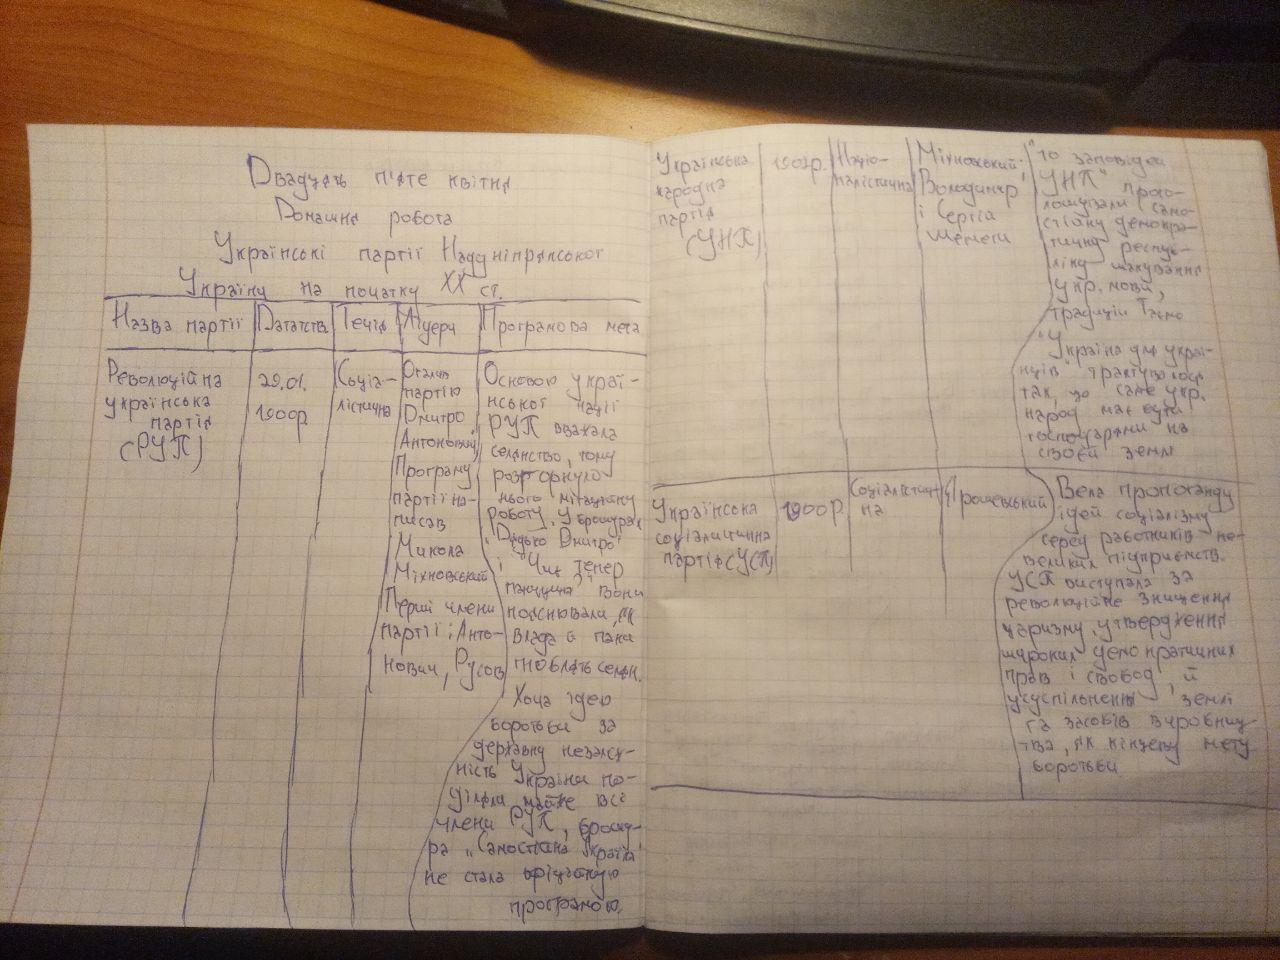 Двадцять п'яте квітня
Домашня робота
Українські партії Наддніпрянської
Україну на початку XX ст.
Назва партії
Дата ств
Течія
Лідери
Програмова мета
Революційна
українська
партія
(РУП)
29.01.
1900р
Соціа-
лістична
партію
Дмитро
Антонович
Програму
партії на-
писав
Микола
Міхновський
Перші члени
партії: Анто-
нович, Русов
Основою украї-
нської нації
РУП вважала
селянство, тому
розгорнуло
нього агітаційну
роботу. У брошурах
"Дядько Дмитро"
і "Чи є тепер
панщина?" вони
пояснювали, як
влада й пани
гноблять селян.
Хоча ідею
боротьби за
державну незалеж-
ність України по-
діляли майже всі
члени РУП, брошу-
ра "Самостійна Україна"
не стала офіційною
програмою.
Українська
народна
партія
(УНП)
1902р.
Націо-
налістична
Міхновський,
Володимир
і Сергій
Шемети
"10 заповідей
УНП" прого-
лошували само-
стійну демокра-
тичну респуб-
ліку шанування
укр. мови,
традицій Гасло
"Україна для украї-
нців" трактувалось
так, що саме укр.
народ має бути
господарями на
своєй землі
Українська
соціалістична
партія (УСП)
1900р.
Соціалістич-
на
Ярошевський
Вела пропоганду
ідей соціалізму
серед работників не-
великих підприємств.
УСП виступала за
революційне знищення
царизму, утвердження
широких демократичних
прав і свобод, й
усуспільнення землі
та засобів виробниц-
тва, як кінцеву мету
боротьби.